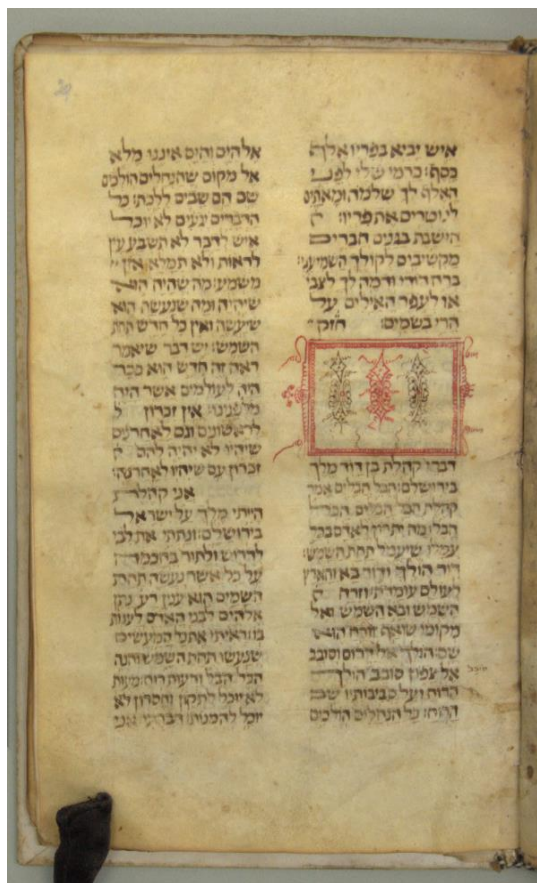 איש יביא בפריו אלף
כסף: כרמי שלי לפני
האלף לך שלמה ומאתים
לנוטרים את פריו: ה
הישבת בגנים חברים
מקשיבים לקולך השמיעני:
ברח דודי ודמה לך לצבי
או לעפר האילים על
הרי בשמים: חזק
דברי קהלת בן דוד מלך
בירושלם: הבל הבלים אמר
קהלת הבל הבלים הכל
הבל: מה יתרון לאדם בכל
עמלו שיעמל תחת השמש:
דור הולך ודור בא והארץ
לעולם עומדת: וזרח ה
השמש ובא השמש ואל
מקומו שואף זורח הוא
שם: הולך אל דרום וסובב
אל צפון סובב הולך
הרוח ועל סביבותיו שב
הרוח: כל הנחלים הולכים
אל הים והים איננו מלא
אל מקום שהנחלים הולכים
שם הם שבים ללכת: כל
הדברים יגעים לא יוכל
איש לדבר לא תשבע עין
לראות ולא תמלא אזן
משמע: מה שהיה הוא
שיהיה ומה שנעשה הוא
שיעשה ואין כל חדש תחת
השמש: יש דבר שיאמר
ראה זה חדש הוא כבר
היה לעולמים אשר היה
מלפנינו: אין זכרון ל
לראשונים וגם לאחרנים
שיהיו לא יהיה להם
זכרון עם שיהיו לאחרנה:
אני קהלת
הייתי מלך על ישראל
בירושלם: ונתתי את לבי
לדרוש ולתור בחכמה
על כל אשר נעשה תחת
השמים הוא ענין רע נתן
אלהים לבני האדם לענות
בו: ראיתי את כל המעשים
שנעשו תחת השמש והנה
הכל הבל ורעות רוח: מעות
לא יוכל לתקון וחסרון לא
יוכל להמנות: דברתי אני